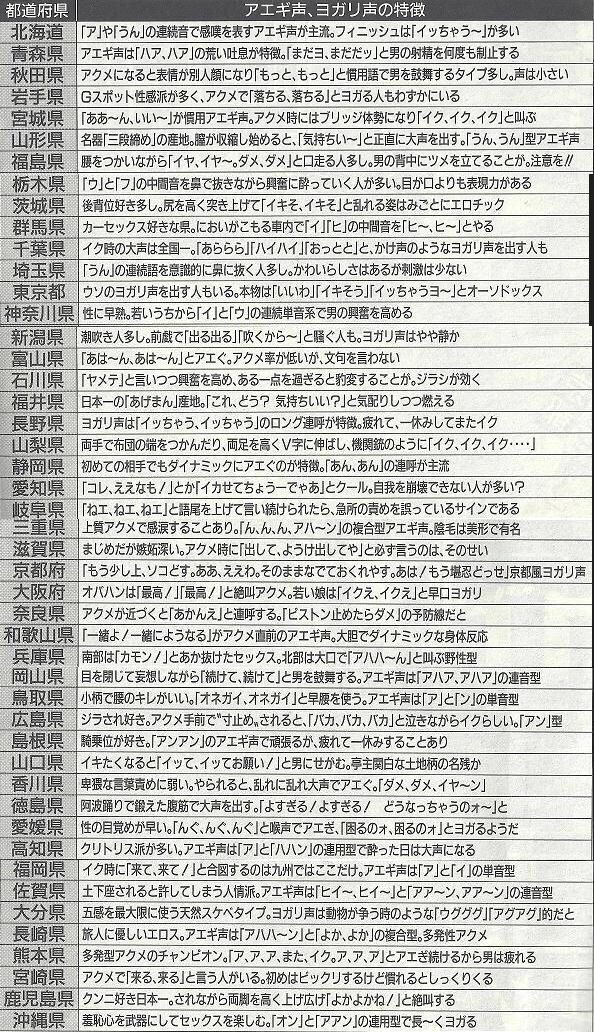 都道府県 アエギ声、ヨガリ声の特徴
北海道 「ア」や「うん」の連続音で感嘆を表すアエギ声が主流。フィニッシュは「イッちゃう〜」が多い
青森県 アエギ声は「ハア、ハア」の荒い吐息が特徴。「まだヨ、まだだッ」と男の射精を何度も制止する
秋田県 アクメになると表情が別人顔になり「もっと、もっと」と慣用語で男を鼓舞するタイプ多し。声は小さい
岩手県 Gスポット性感派が多く、アクメで「落ちる、落ちる」とヨガる人もわずかにいる
宮城県 「ああ〜ん、いい〜」が慣用アエギ声。アクメ時にはブリッジ体勢になり「イク、イク、イク」と叫ぶ
山形県 名器「三段締め」の産地。膣が収縮し始めると、「気持ちい〜」と正直に大声を出す。「うん、うん」型アエギ声
福島県 腰をつかいながら「イヤ、イヤ〜。ダメ、ダメ」と口走る人多し。男の背中にツメを立てることが。注意を!!
栃木県 「ウ」と「フ」の中間音を鼻で抜きながら興奮に酔っていく人が多い。目が口よりも表現力がある
茨城県 後背位好き多し。尻を高く突き上げて「イキそ、イキそ」と乱れる姿はみごとにエロチック
群馬県 カーセックス好きな県。においがこもる車内で「イ」「ヒ」の中間音を「ヒ〜、ヒ〜」とやる
千葉県 イク時の大声は全国一。「あららら」「ハイハイ」「おっとと」と、かけ声のようなヨガリ声を出す人も
埼玉県 「うん」の連続語を意識的に鼻に抜く人多し。かわいらしさはあるが刺激は少ない
東京都 ウソのヨガリ声を出す人もいる。本物は「いいわ」「イキそう」「イッちゃうヨ〜」とオーソドックス
神奈川県 性に早熟。若いうちから「イ」と「ウ」の連続単音系で男の興奮を高める
新潟県 潮吹き人多し。前戯で「出る出る」「吹くから〜」と騒ぐ人も。ヨガリ声はやや静か
富山県 「あは〜ん、あは〜ん」とアエぐ。アクメ率が低いが、文句を言わない
石川県 「ヤメテ」と言いつつ興奮を高め、ある一点を過ぎると豹変することが。ジラシが効く
福井県 日本一の「あげまん」産地。「これ、どう？ 気持ちいい？」と気配りしつつ燃える
長野県 ヨガリ声は「イッちゃう、イッちゃう」のロング連呼が特徴。疲れて、一休みしてまたイク
山梨県 両手で布団の端をつかんだり、両足を高くV字に伸ばし、機関銃のように「イク、イク、イク・・・・」
静岡県 初めての相手でもダイナミックにアエぐのが特徴。「あん、あん」の連呼が主流
愛知県 「コレ、ええなも！」とか「イカせてちょうーでゃあ」とクール。自我を崩壊できない人が多い？
岐阜県 「ねエ、ねエ、ねエ」と語尾を上げて言い続けられたら、急所の責めを誤っているサインである
三重県 上質アクメで感涙することあり。「ん、ん、ん、アハ〜ン」の複合型アエギ声。陰毛は美形で有名
滋賀県 まじめだが嫉妬深い。アクメ時に「出して、ようけ出してや」と必ず言うのは、そのせい
京都府 「もう少し上、ソコどす。ああ、ええわ。そのままなでておくれやす。あは！もう堪忍どっせ」京都風ヨガリ声
大阪府 オバハンは「最高！」「最高！」と絶叫アクメ。若い娘は「イクぇ、イクえ」と早口ヨガリ
奈良県 アクメが近づくと「あかんえ」と連呼する。「ピストン止めたらダメ」の予防線だと
和歌山県 「一緒よ！一緒にようなる」がアクメ直前のアエギ声。大胆でダイナミックな身体反応
兵庫県 南部は「カモン！」とあか抜けたセックス。北部は大口で「アハハ〜ん」と叫ぶ野性型
岡山県 目を閉じて妄想しながら「続けて、続けて」と男を鼓舞する。アエギ声は「アハア、アハア」の連音型
鳥取県 小柄で腰のキレがいい。「オネガイ、オネガイ」と早腰を使う。アエギ声は「ア」と「ン」の単音型
広島県 ジラされ好き。アクメ手前で〝寸止め〟されると、「バカ、バカ、バカ」と泣きながらイクらしい。「アン」型
島根県 騎乗位が好き。「アンアン」のアエギ声で頑張るが、疲れて一休みすることあり
山口県 イキたくなると「イッて、イッてお願い！」と男にせがむ。亭主関白な土地柄の名残か
香川県 卑猥な言葉責めに弱い。やられると、乱れに乱れ大声でアエぐ。「ダメ、ダメ、イヤ〜ン」
徳島県 阿波踊りで鍛えた腹筋で大声を出す。「よすぎる！よすぎる！ どうなっちゃうのォ〜」と
愛媛県 性の目覚めが早い。「んぐ、んぐ、んぐ」と喉声でアエぎ、「困るのォ、困るのォ」とヨガるようだ
高知県 クリトリス派が多い。アエギ声は「ア」と「ハハン」の連用型で酔った日は大声になる
福岡県 イク時に「来て、来て！」と合図するのは九州ではここだけ。アエギ声は「ア」と「イ」の単音型
佐賀県 土下座されると許してしまう人情派。アエギ声は「ヒイ〜、ヒイ〜」と「アア〜ン、アア〜ン」の連音型
大分県 五感を最大限に使う天然スケベタイプ。ヨガリ声は動物が争う時のような「ウグググ」「アグアグ」的だと
長崎県 旅人に優しいエロス。アエギ声は「アハハ〜ン」と「よか、よか」の複合型。多発性アクメ
熊本県 多発型アクメのチャンピオン。「ア、ア、ア、また、イク。ア、ア、ア」とアエぎ続けるから男は疲れる
宮崎県 アクメで「来る、来る」と言う人がいる。初めはビックリするけど慣れるとしっくりくる
鹿児島県 クンニ好き日本一。されながら両脚を高く上げ広げ「よかよかね！」と絶叫する
沖縄県 羞恥心を武器にしてセックスを楽しむ。「オン」と「アアン」の連用型で長〜くヨガる